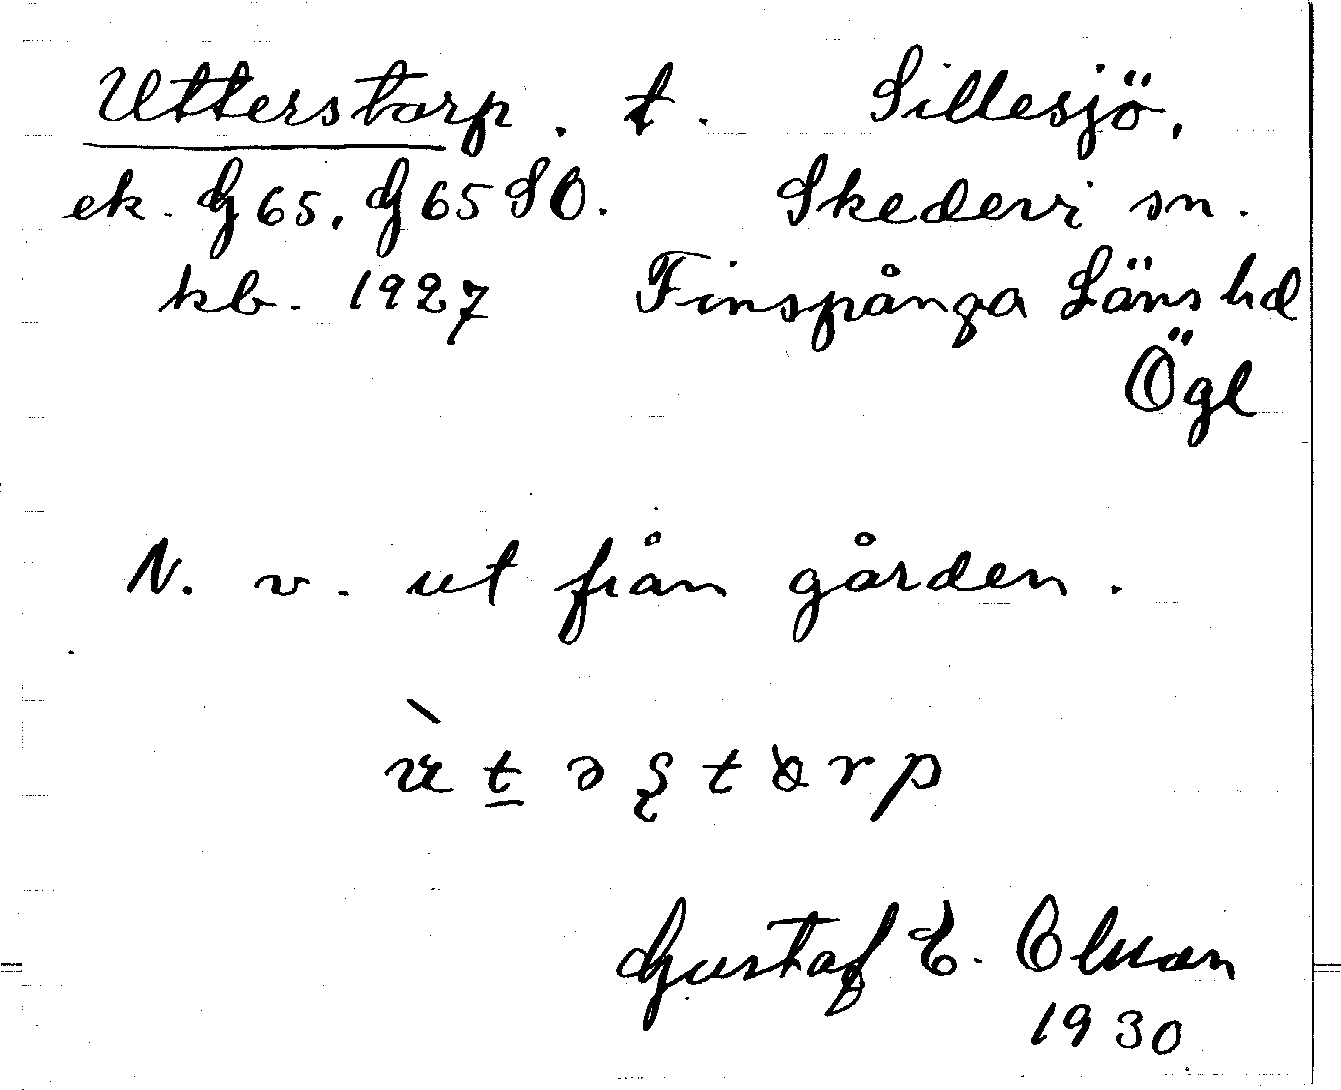 Utterstorp. t. Sillesjö,
ek. G65, G65SO. Skedevi sn.
kb. 1927 Finspånga Läns hd
Ögl
N. v. ut från gården.
Gustaf E. Olsson
1930